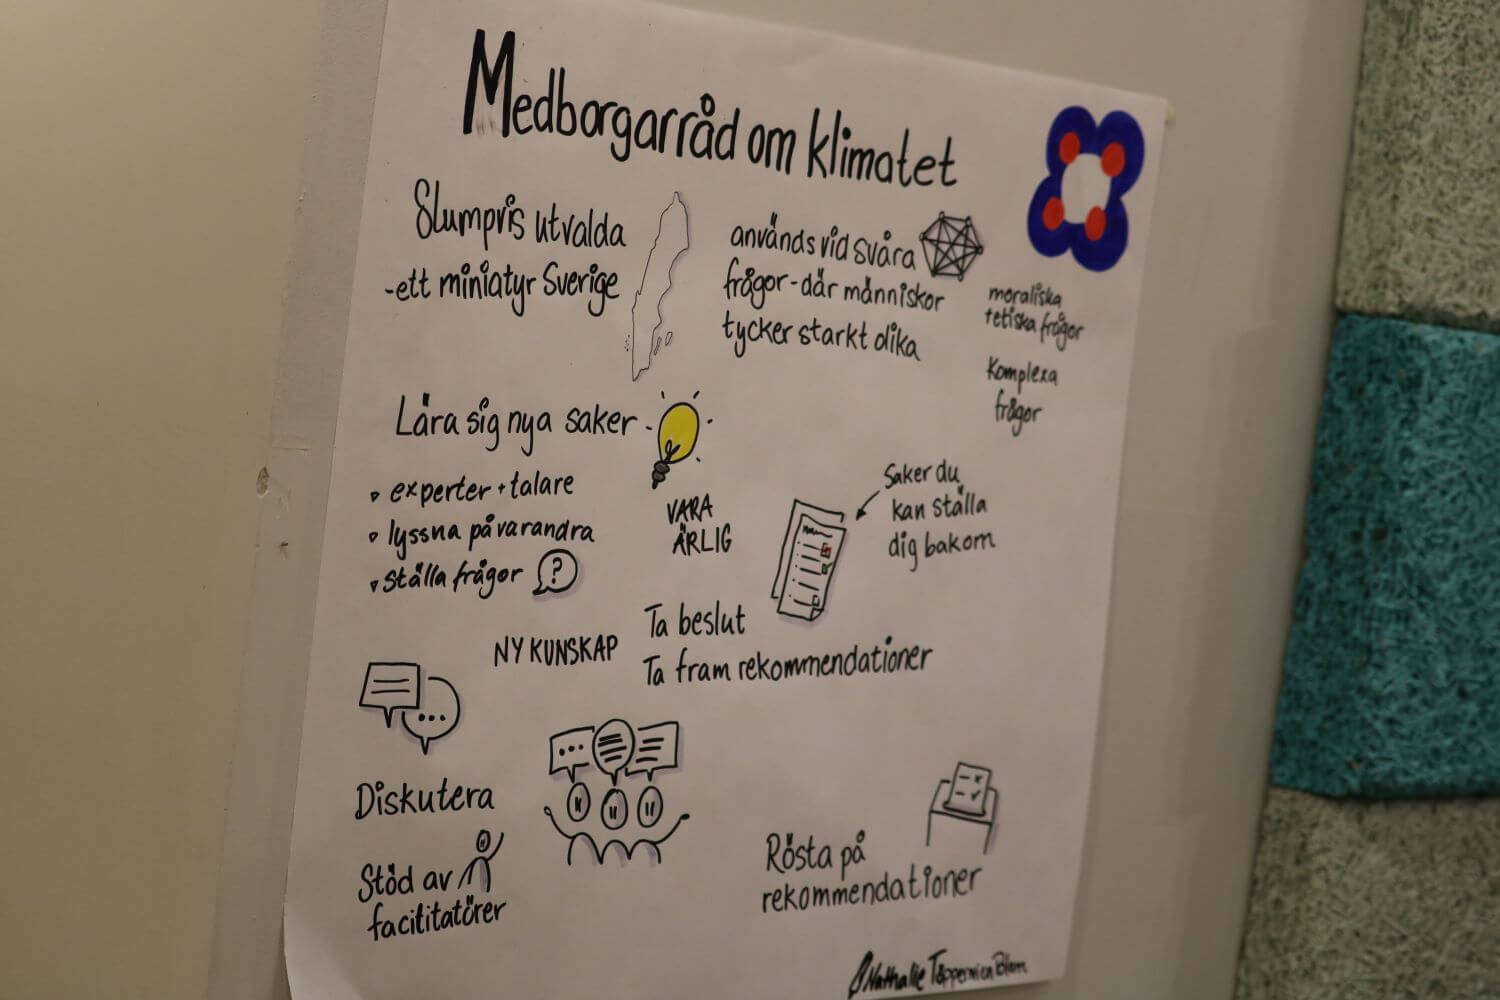 Medborgarråd om klimatet
Slumpvis utvalda
-ett miniatyr Sverige
används vid svåra
frågor - där människor
tycker starkt olika
moraliska
tetiska frågor
Komplexa
frågor
Lära sig nya saker
experter + talare
lyssna på varandra
ställa frågor
?
VARA
ÄRLIG
Saker du
kan ställa
dig bakom
NY KUNSKAP
Ta beslut
Ta fram rekommendationer
Diskutera
Stöd av
facilitatörer
Rösta på
rekommendationer
Nathalie